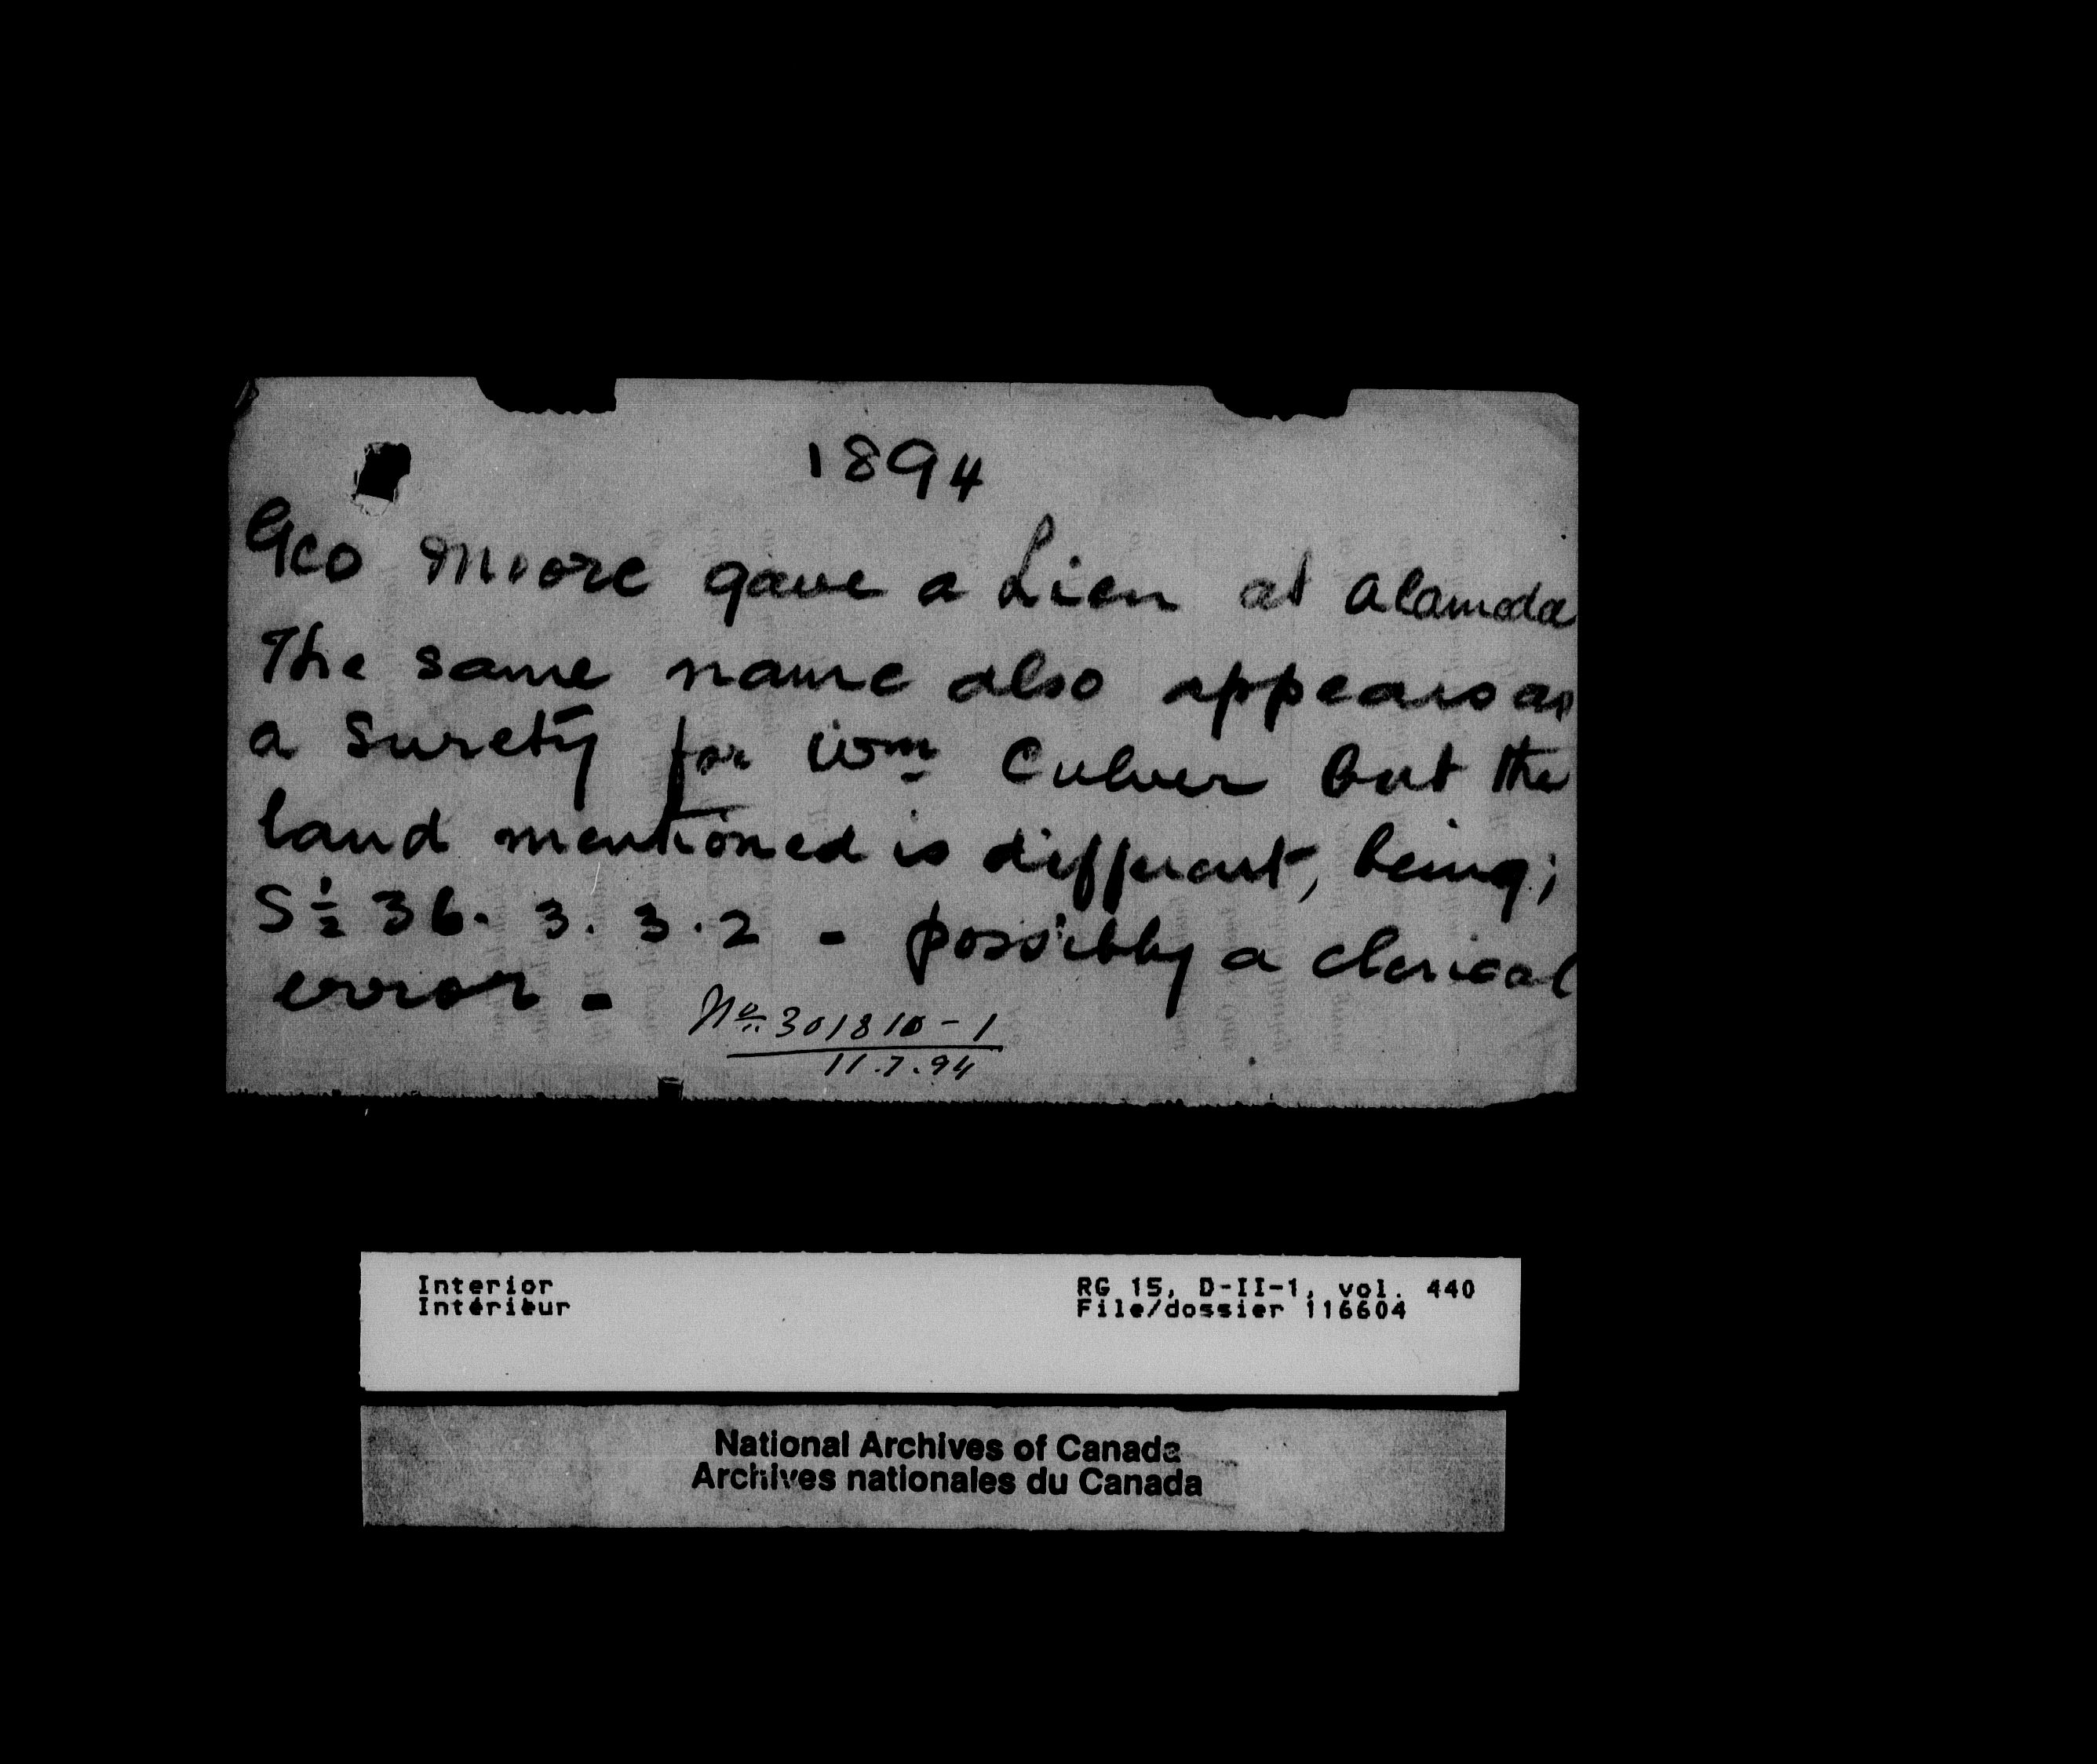 1894
Geo Moore gave a Lien at Alameda
The same name also appears as
a surety for Wm Culver but the
land mentioned is different, being;
S ½ 36. 3. 3. 2 - possibly a clerical
error -
No. 301810-1
11.7.94
Interior
Intérieur
RG 15, D-II-1, vol. 440
File/dossier 116604
National Archives of Canada
Archives nationales du Canada